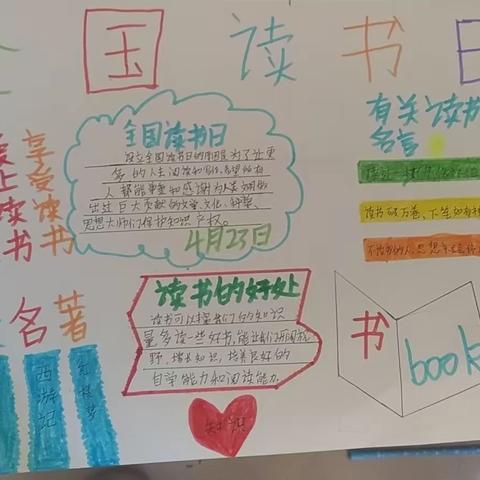 全国读书日
全国读书日
设立全国读书日的目的是为了让更
多的人去阅读和写作,希望所有
人都能尊重和感谢为人类文明做
出过巨大贡献的文学、文化、科学、
思想大师们,保护知识产权。
4月23日
有关读书
名言
读书破万卷,下笔如有神
享受读书
爱上读书
名著
西游记
红楼梦
读书的好处
读书可以增长我们的知识
量,多读一些好书,能让我们开阔视
野,增长知识,培养良好的
自学能力和阅读能力.
知识
书
book